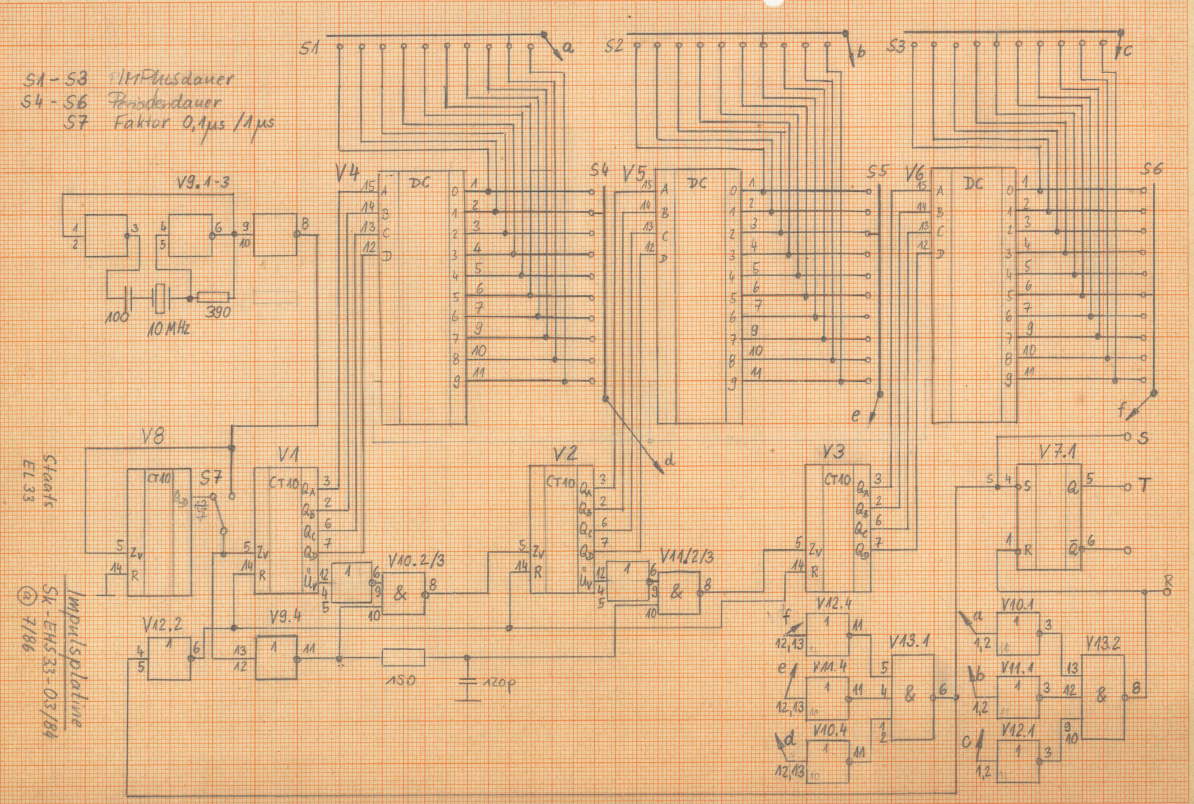 S1
a
S2
b
S3
c
S1 - S3
S4 - S6 Periodendauer
S7 Faktor 0,1µs / 1µs
V9.1-3
1
2
3
4
5
6
9
10
8
100
10 MHz
390
V4
DC
15 A
14 B
13 C
12 D
0 1
1 2
2 3
3 4
4 5
5 6
6 7
7 9
8 10
9 11
S4
d
V5
DC
15 A
14 B
13 C
12 D
0 1
1 2
2 3
3 4
4 5
5 6
6 7
7 9
8 10
9 11
S5
e
V6
DC
15 A
14 B
13 C
12 D
0 1
1 2
2 3
3 4
4 5
5 6
6 7
7 9
8 10
9 11
S6
f
V8
CT10
QD
5 ZV
14 R
S7
V1
CT10
QA 3
QB 2
QC 6
QD 7
ÜV 12
5 ZV
14 R
4
5
1
6
V10.2/3
9
10
&
8
V2
CT10
QA 3
QB 2
QC 6
QD 7
ÜV 12
5 ZV
14 R
4
5
1
6
V11/2/3
9
10
&
8
V3
CT10
QA 3
QB 2
QC 6
QD 7
5 ZV
14 R
V7.1
S 4 S
1 R
Q 5
Q̅ 6
S
T
R
V12.2
4
5
1
6
V9.4
13
12
1
11
150
120p
V12.4
f
12,13
1
11
V11.4
e
12,13
1
11
V10.4
d
12,13
1
11
V13.1
5
4
1
2
&
6
V10.1
a
1,2
1
3
V11.1
b
1,2
1
3
V12.1
c
1,2
1
3
V13.2
13
12
9
10
&
8
Staats
EL33
Impulsplatine
SK-EHS33-03/84
@ 7/86